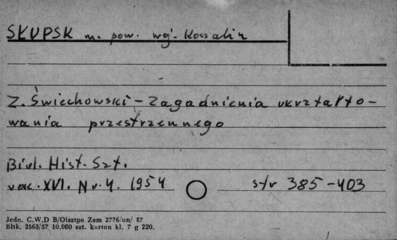 SŁUPSK m. pow. woj. Koszalin
Z. Świechowski - Zagadnienia ukształto-
wania przestrzennego
Biul. Hist. Szt.
roc. XVI. Nr. 4. 1954 str 385-403
Jedn. C.W.D B/Olsztyn Zam 2776/on/ 57
Bltk. 2563/57 10.000 szt. karton kl. 7 g 220.